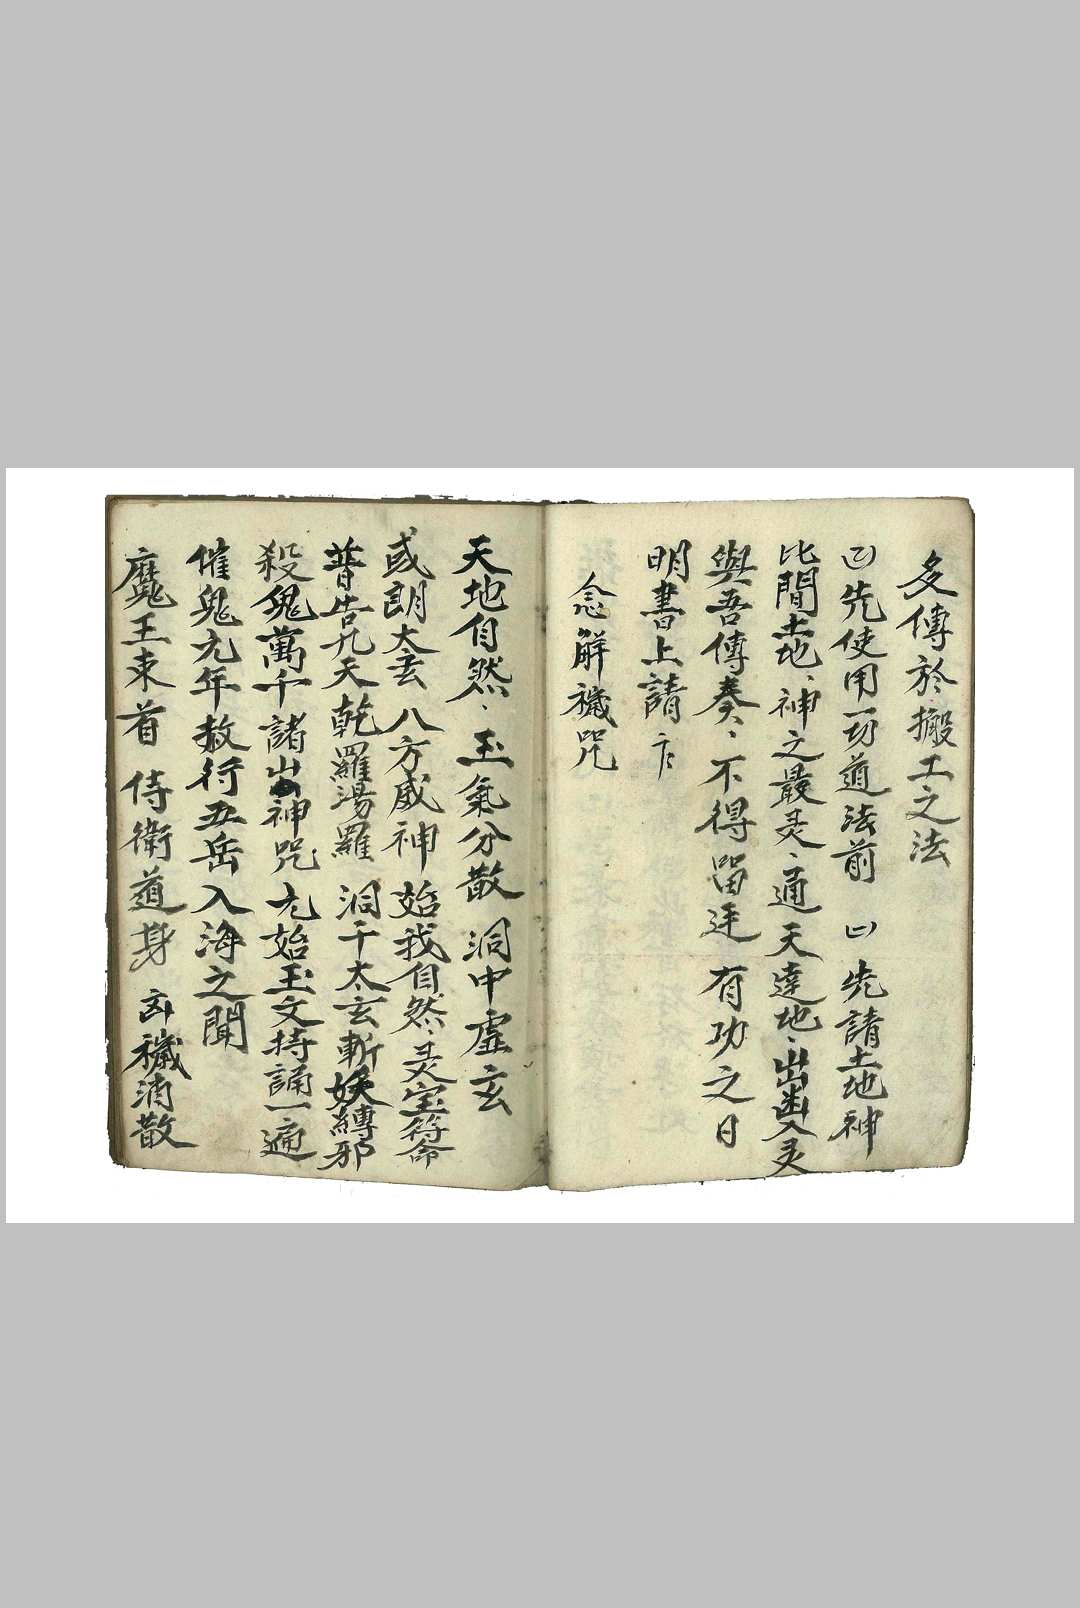 多傳於搬工之法
凹先使用一功道法前 凹先請土地神
比間土地、神之最灵、通天達地、出幽入灵
與吾傳奏、不得留迋 有功之日
明書上請
念解穢咒
天地自然、玉氣分散 洞中虛玄
或朗太玄 八方威神 始我自然 灵宝符命
普告九天 乾羅湯羅 洞千太玄 斬妖縛邪
殺鬼萬千 諸山神咒 元始玉文 持誦一遍
催鬼元年 敖行五岳 入海之聞
魔王束首 侍衛道身 穢消散